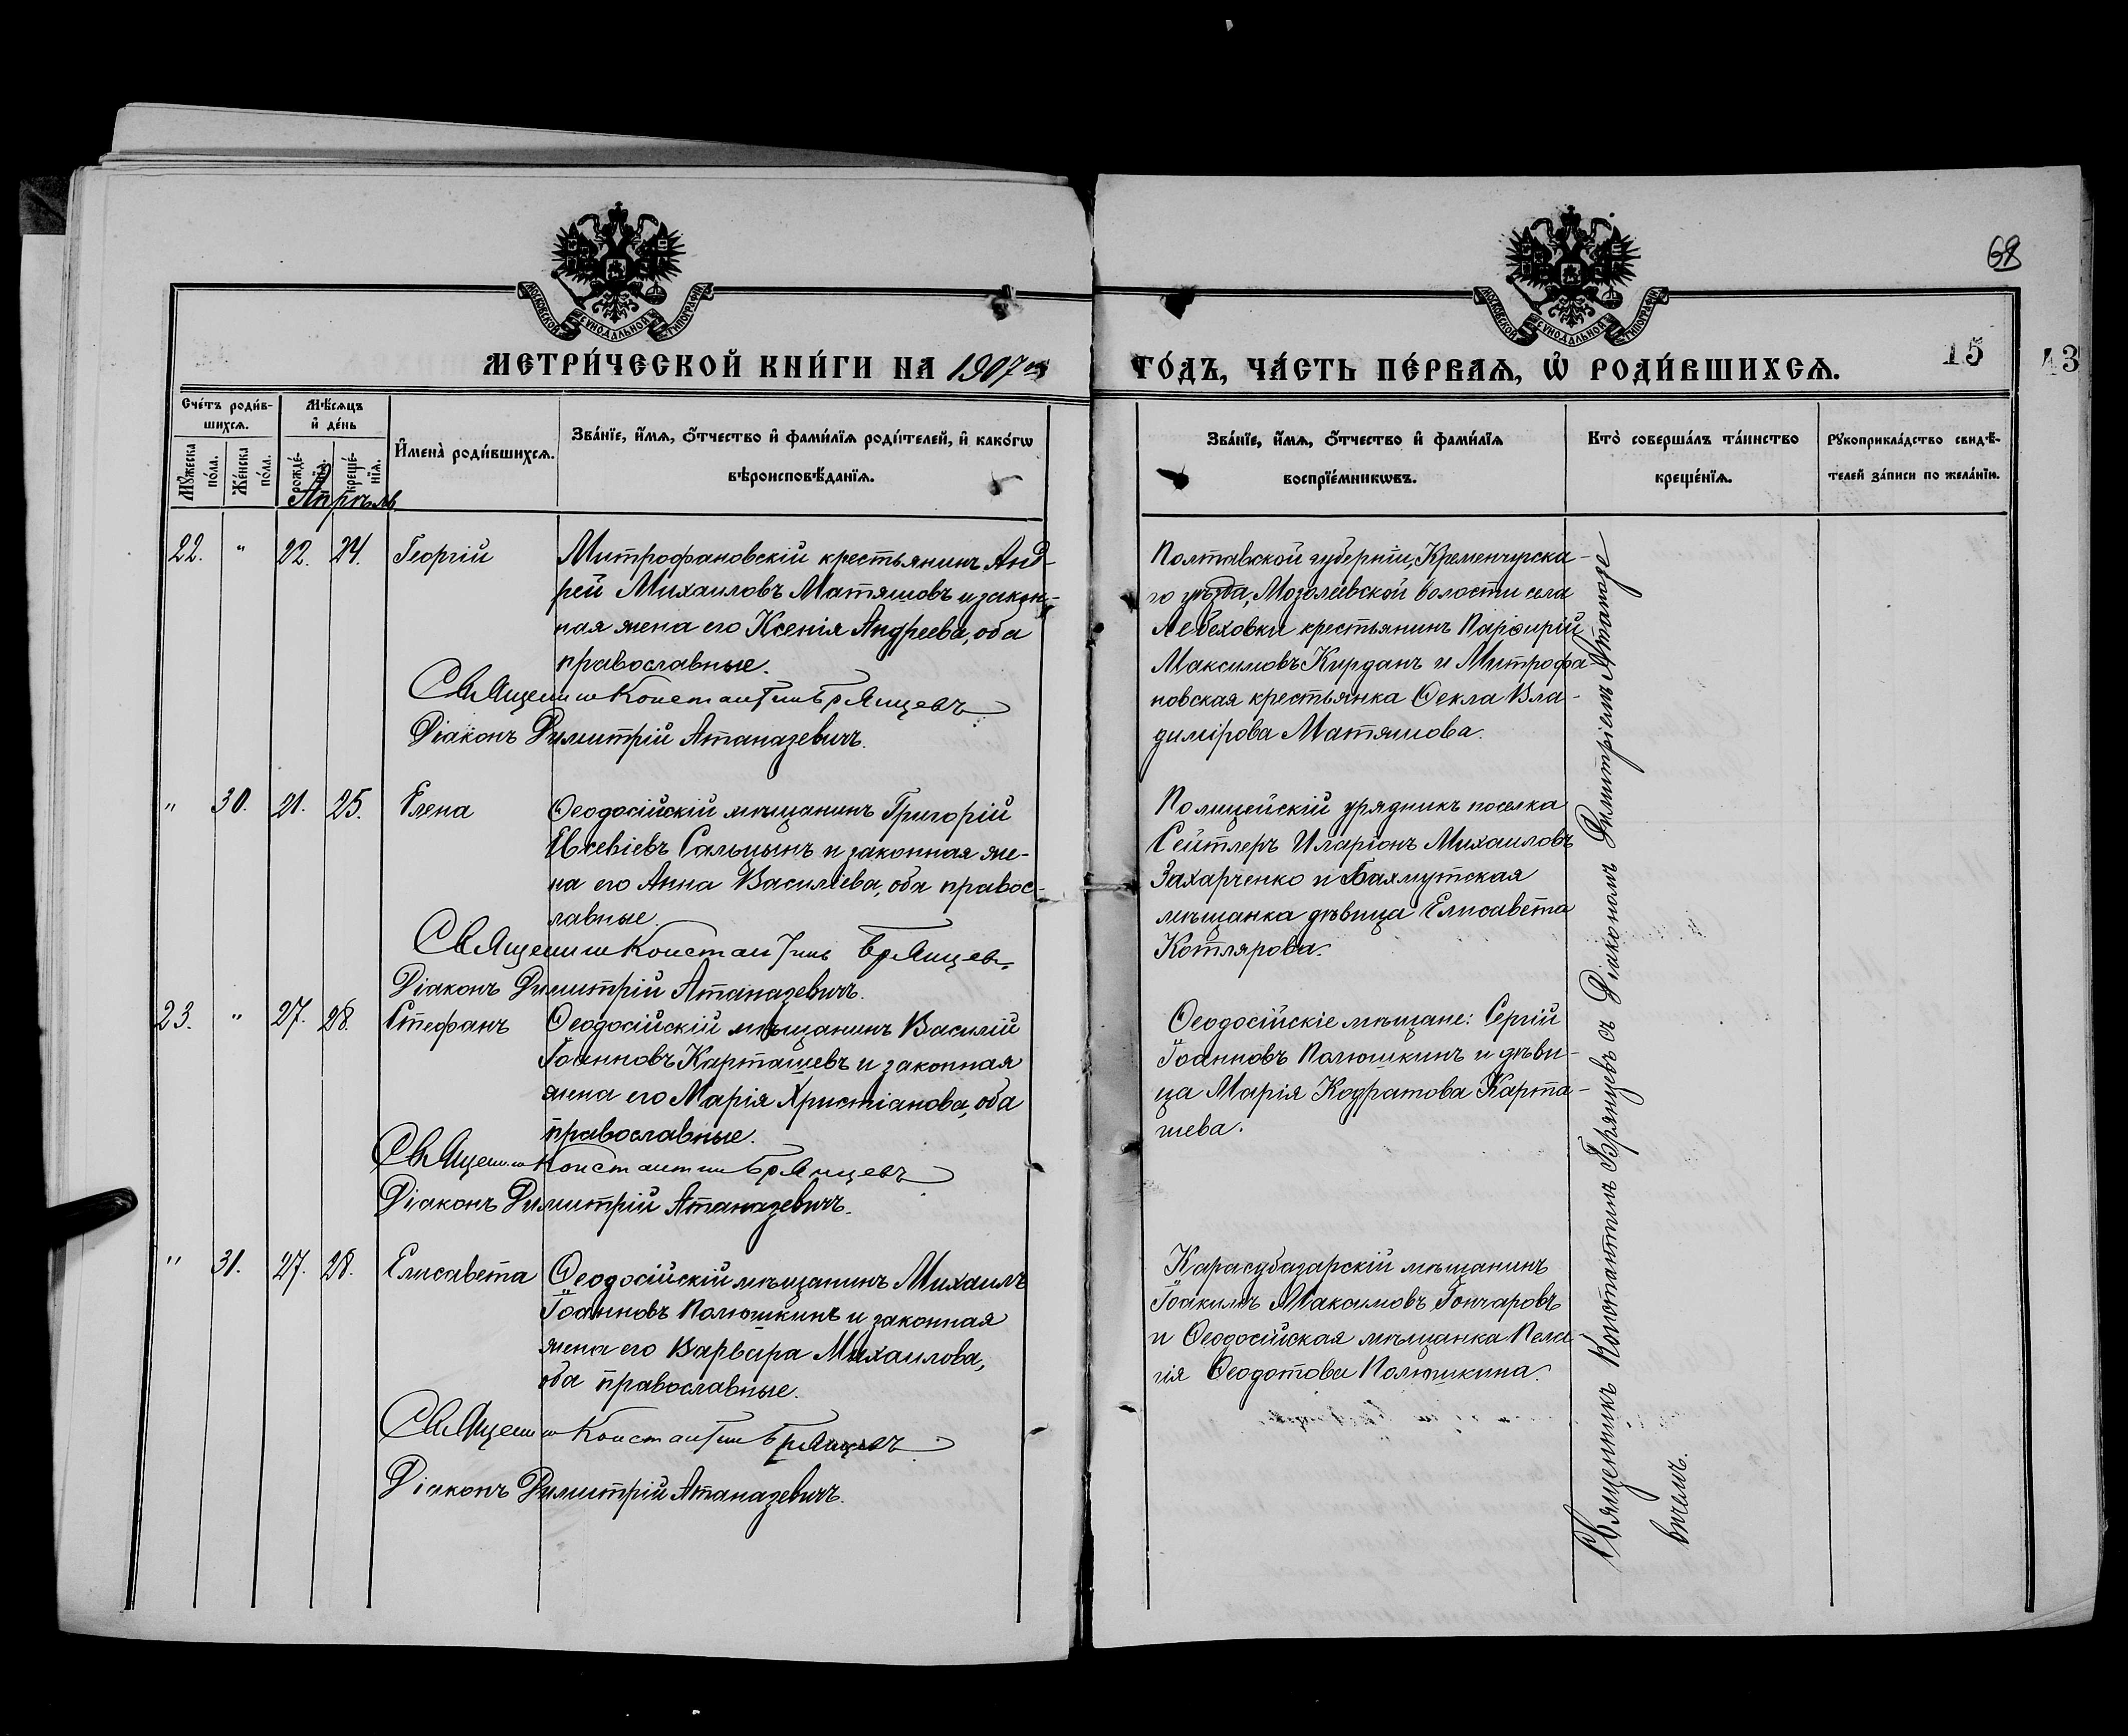 68
МОСКОВСКОЙ СУНОДАЛЬНОЙ ТИПОГРАФІИ
МОСКОВСКОЙ СУНОДАЛЬНОЙ ТИПОГРАФІИ
МЕТРИ́ЧЕСКОЙ КНИ́ГИ НА 1907 й
ГО́ДЪ, ЧА́СТЬ ПЕ́РВАѦ, Ѡ҆ РОДИ́ВШИХСѦ.
15
43
Сче́тъ роди́в-
шихсѧ.
Мѣ́сѧцъ
и҆ де́нь
Мꙋ́жеска
по́ла.
Же́нска
по́ла.
рожде́-
нїѧ.
креще́-
нїѧ.
И҆мена̀ роди́вшихсѧ.
Зва́нїе, и҆́мѧ, ѻ҆́тчество и҆ фами́лїѧ роди́телей, и҆ како́гѡ
вѣроисповѣ́данїѧ.
Зва́нїе, и҆́мѧ, ѻ҆́тчество и҆ фами́лїѧ
воспрїе́мникѡвъ.
Кто̀ соверша́лъ та́инство
креще́нїѧ.
Рꙋкоприкла́дство свидѣ́-
телей за́писи по жела́нїю.
Апрѣль
22. " 22. 24. Георгій
Митрофановскій крестьянинъ Анд-
рей Михаиловъ Матяшовъ и закон-
ная жена его Ксенія Андреева, оба
православные.
Священник Константинъ Брянцевъ
Діаконъ Димитрій Атаназевичъ.
Полтавской губерніи, Кременчугска-
го уѣзда, Мозолѣевской волости села
Лебеховки крестьянинъ Парфирій
Максимовъ Кирданъ и Митрофа
новская крестьянка Ѳекла Вла-
димірова Матяшова.
" 30. 21. 25. Елена
Ѳеодосійскій мѣщанинъ Григорій
Евсевіевъ Сальцынъ и законная же-
на его Анна Василіева, оба правос-
лавные.
Священник Константинъ Брянцевъ
Діаконъ Димитрій Атаназевичъ.
Полицейскій урядникъ поселка
Сейтлеръ Иларіонъ Михаиловъ
Захарченко и Бахмутская
мѣщанка дѣвица Елисавета
Котлярова.
23. " 27. 28. Стефанъ
Ѳеодосійскій мѣщанинъ Василій
Іоанновъ Карташевъ и законная
жена его Марія Христіанова, оба
православные.
Священник Константин Брянцевъ
Діаконъ Димитрій Атаназевичъ.
Ѳеодосійскіе мѣщане: Сергій
Іоанновъ Полюшкинъ и дѣви-
ца Марія Кодратова Карта-
шева.
" 31. 27. 28. Елисавета
Ѳеодосійскій мѣщанинъ Михаилъ
Іоанновъ Полюшкинъ и законная
жена его Варвара Михаилова,
оба православные.
Священник Константин Брянцевъ
Діаконъ Димитрій Атаназевичъ.
Карасубазарскій мѣщанинъ
Іоакимъ Максимовъ Гончаровъ
и Ѳеодосійская мѣщанка Пела-
гія Ѳеодотова Полюшкина.
Священникъ Константинъ Брянцевъ съ Діакономъ Димитріемъ Атаназе
вичемъ.